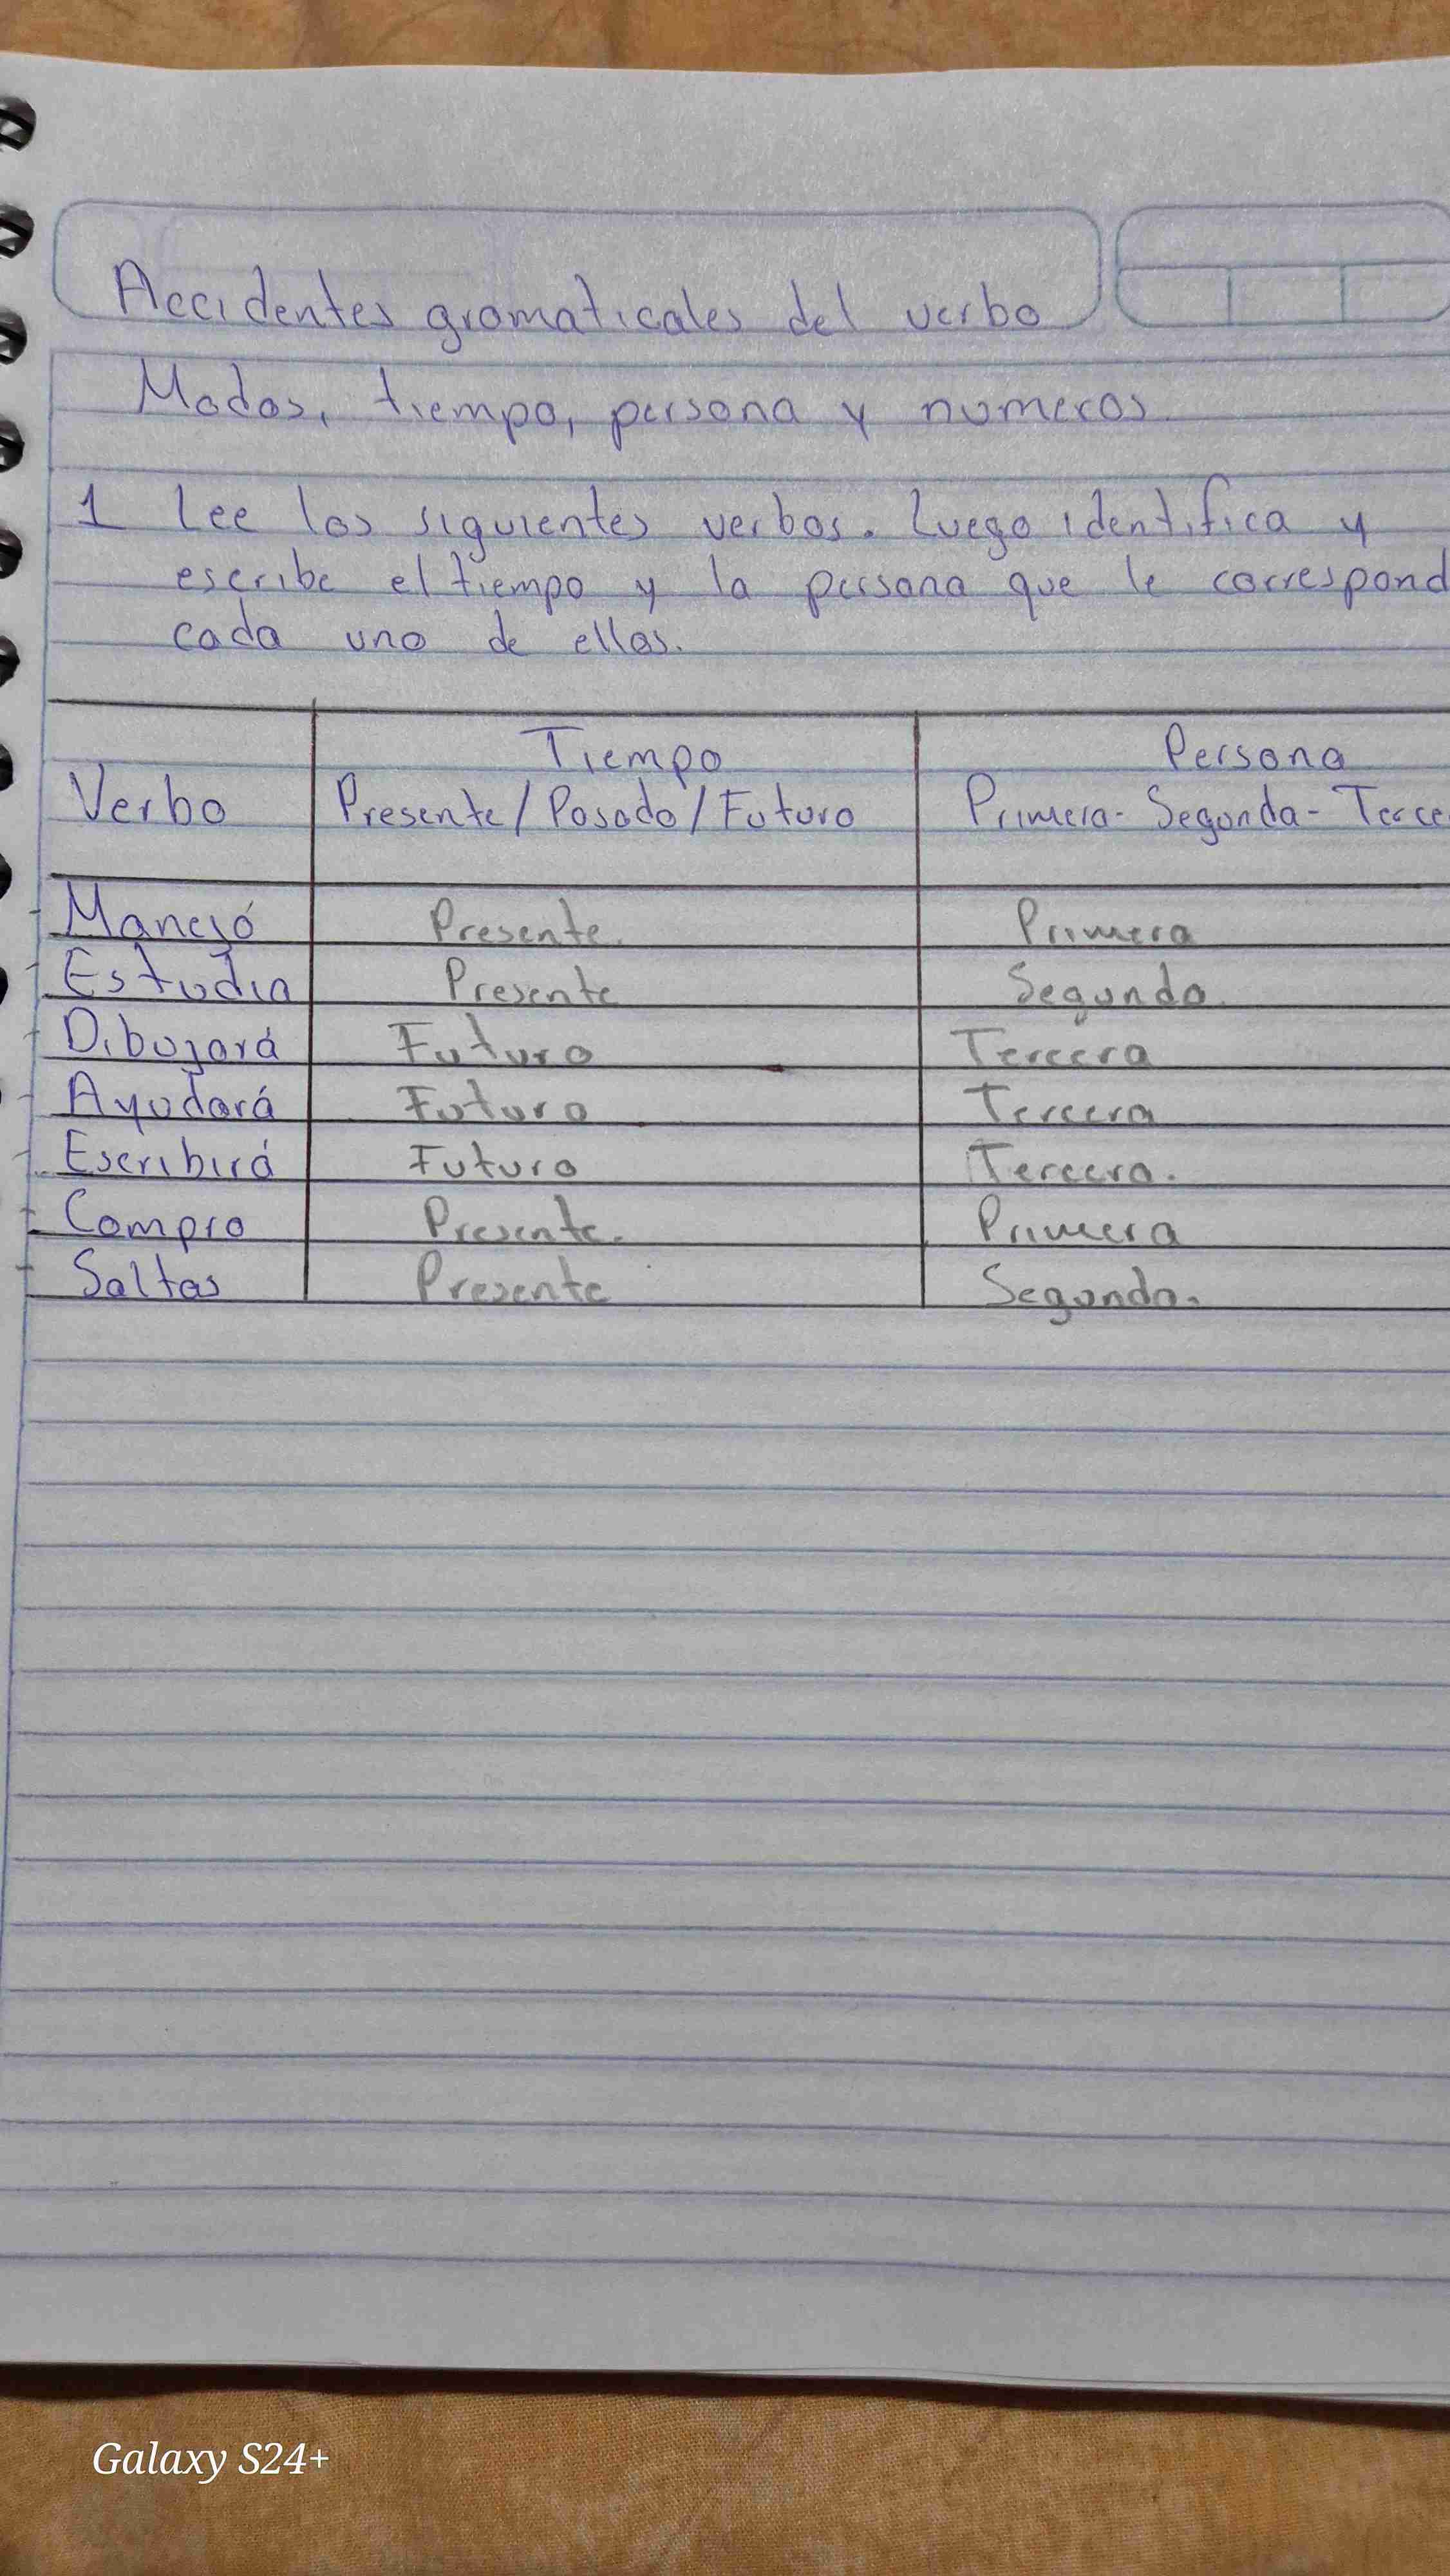 Accidentes gramaticales del verbo
Modos, tiempo, persona y numeros.
1 Lee los siguientes verbos. Luego identifica y
escribe el tiempo y la persona que le correspond
cada uno de ellos.
Tiempo Persona
Verbo Presente/Pasado/Futuro Primera-Segunda-Terce
Manejó Presente. Primera
Estudia Presente Segunda.
Dibujará Futuro Tercera
Ayudará Futuro Tercera
Escribirá Futuro Tercera.
Compro Presente. Primera
Saltas Presente Segunda.
Galaxy S24+